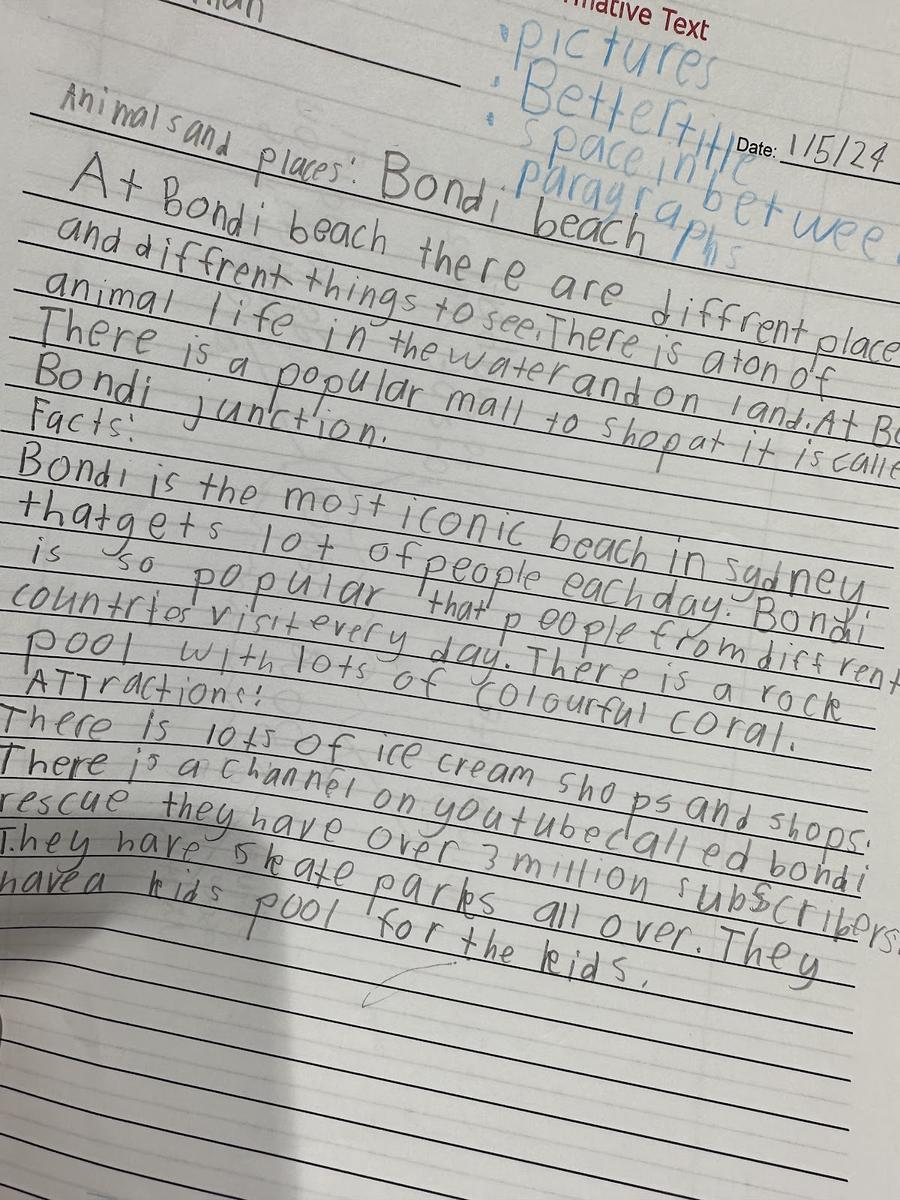 Text
• pictures
• Better title
• space in between
paragraphs
Date: 1/5/24
Animals and places: Bondi beach
At Bondi beach there are diffrent place
and diffrent things to see. There is a ton of
animal life in the water and on land. At
There is a popular mall to shop at it is
Bondi junction.
Facts:
Bondi is the most iconic beach in sydney
that gets lot of people each day. Bondi
is so popular that people from diffrent
countries visit every day. There is a rock
pool with lots of colourful coral.
ATTractions:
There is lots of ice cream shops and shops.
There is a channel on youtube called bondi
rescue they have over 3 million subscribers.
They have skate parks all over. They
have a kids pool for the kids.